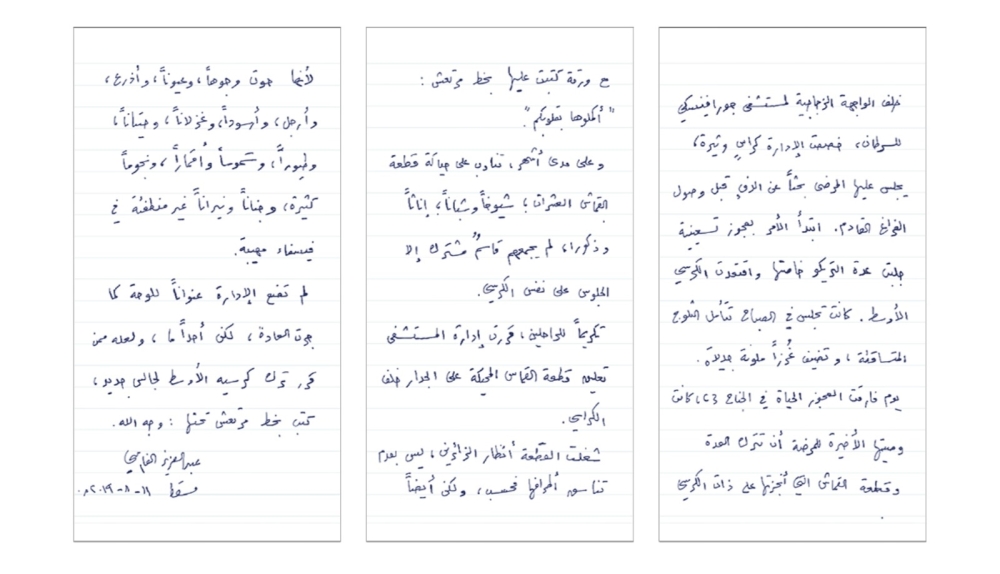 خلف الواجهة الزجاجية لمستشفى جورافينسكي
للسرطان، خصصت الإدارة كراسٍ وثيرة،
يجلس عليها المرضى بحثاً عن الدفء قبل وصول
الفراغ القادم. ابتدأ الأمر بعجوز تسعينية
جلبت عدة التريكو خاصتها واقتعدت الكرسي
الأوسط. كانت تجلس في الصباح تتأمل الثلوج
المتساقطة، وتضيف غُرزاً ملونة جديدة.
يوم فارقت العجوز الحياة في الجناح C3، كانت
وصيتها الأخيرة للممرضة أن تترك العدة
وقطعة القماش التي أنجزتها على ذات الكرسي
مع ورقة كتبت عليها بخط مرتعش:
"أكملوها بقلوبكم".
وعلى مدى أشهر، تناوب على حياكة قطعة
القماش العشرات؛ شيوخاً وشباناً، إناثاً
وذكورا، لم يجمعهم قاسمٌ مشترك إلا
الجلوس على نفس الكرسي.
تكريماً للراحلين، قررت إدارة المستشفى
تعليق قطعة القماش المحيكة على الجدار خلف
الكراسي.
شغلت القطعة أنظار الزائرين، ليس بعدم
تناسق أطرافها فحسب، ولكن أيضاً
لأنها حوت وجوهاً، وعيوناً، وأذرع،
وأرجل، وأسوداً، وغزلاناً، وحيتاناً،
وطيوراً، وشموساً وأقماراً، ونجوماً
كثيرة، وجناناً ونيراناً غير منطفئة في
فسيفساء مهيبة.
لم تضع الإدارة عنواناً للوحة كما
جرت العادة، لكن أحداً ما، ولعله ممن
قرر ترك كرسيه الأوسط لجالس جديد،
كتب بخط مرتعش تحتها: وجه الله.
عبدالعزيز الفارسي
مسقط ١١-٨-٢٠١٩م.